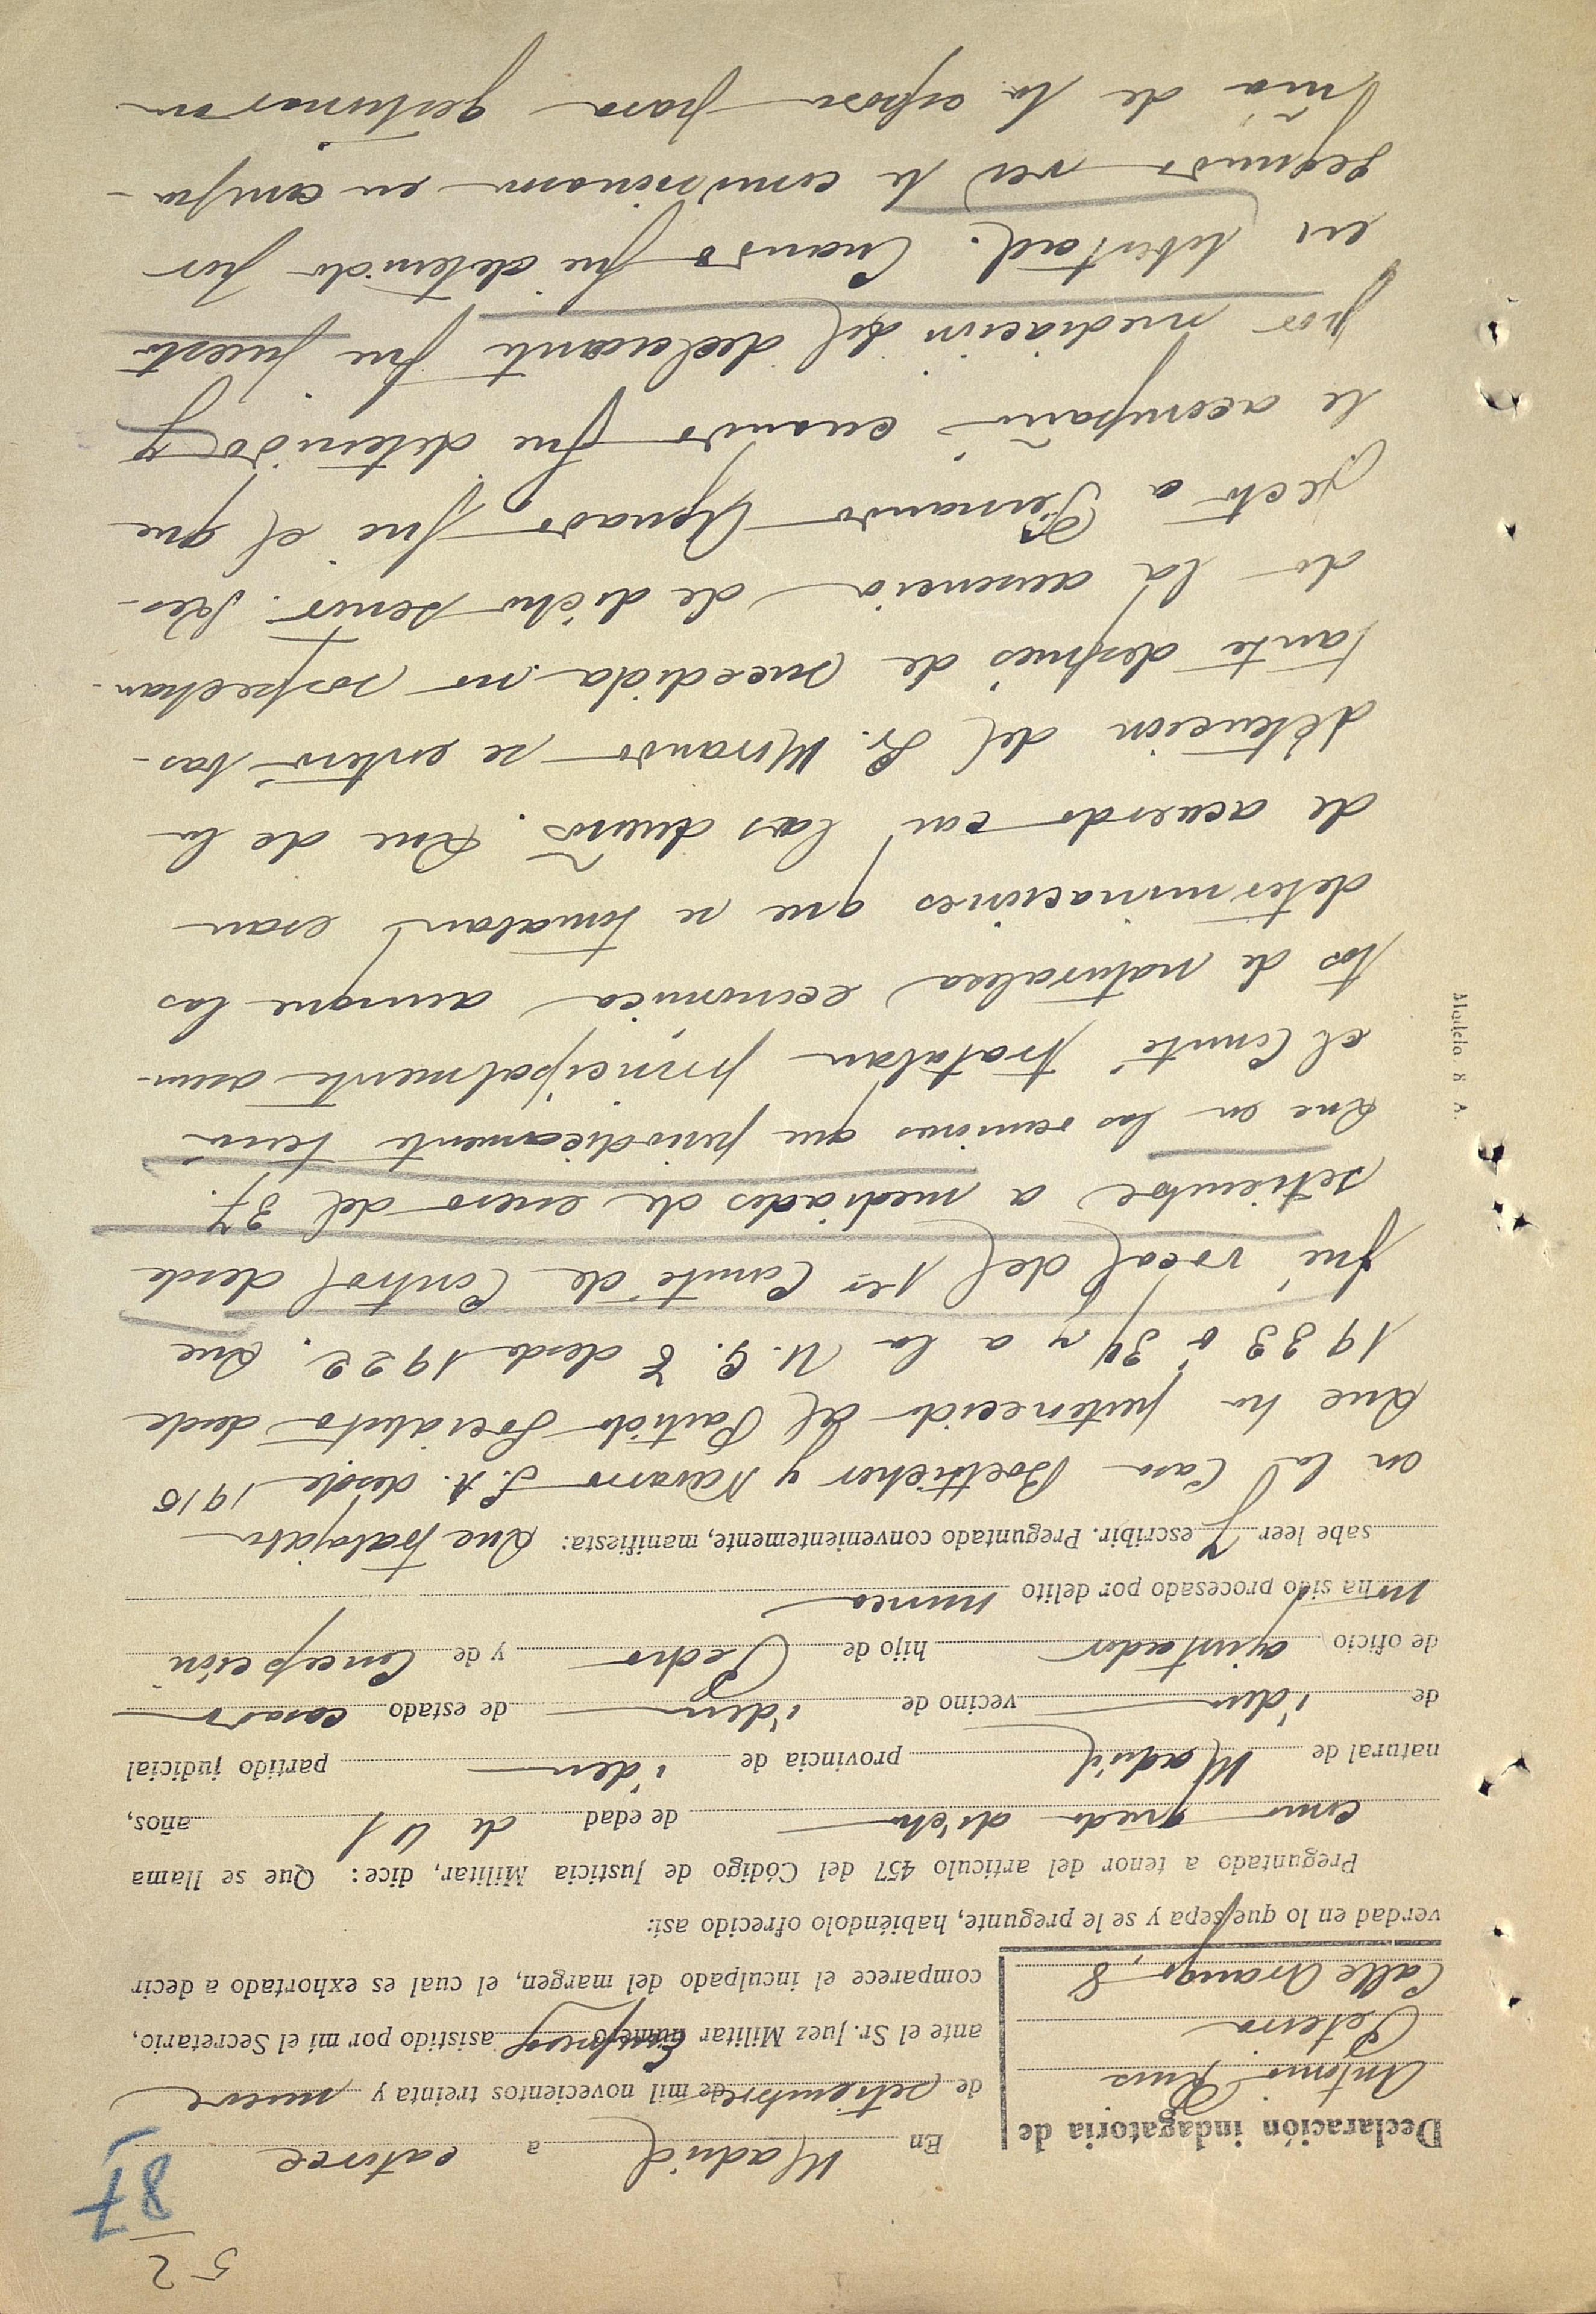 52
87
Declaración indagatoria de
Antonio Ruiz
Peteira
Calle Arango, 8
En Madrid a catorce
de setiembre de mil novecientos treinta y nueve
ante el Sr. Juez Militar número asistido por mí el Secretario,
comparece el inculpado del margen, el cual es exhortado a decir
verdad en lo que sepa y se le pregunte, habiéndolo ofrecido así:
Preguntado a tenor del artículo 457 del Código de Justicia Militar, dice: Que se llama
como queda dicho de edad de 41 años,
natural de Madrid provincia de iden partido judicial
de iden vecino de iden de estado casado
de oficio ajustador hijo de Pedro y de Concepción
no ha sido procesado por delito nunca
sabe leer y escribir. Preguntado convenientemente, manifiesta: Que trabajaba
en la Casa Boetticher y Navarro S. A. desde 1916
Que ha pertenecido al Partido Socialista desde
1933 o 34 y a la U. G. T desde 1922. Que
fué vocal del 1er Comité de Control desde
setiembre a mediados de enero del 37.
Que en las reuniones que periodicamente tenia
el Comité trataban principalmente asun-
tos de naturaleza economica aunque las
determinaciones que se tomaban eran
de acuerdo con los dueños. Que de la
detención del Sr. Mirando se enteró bas-
tante después de sucedida no sospechan-
do la ausencia de dicho señor. Res-
pecto a Fernando Aguado fue el que
le acompañó cuando fue detenido y
por mediación del declarante fue puesto
en libertad. Cuando fue detenido por
segunda vez le comisionaron en compa-
ñia de la esposa para gestionaron
Modelo 8 A.